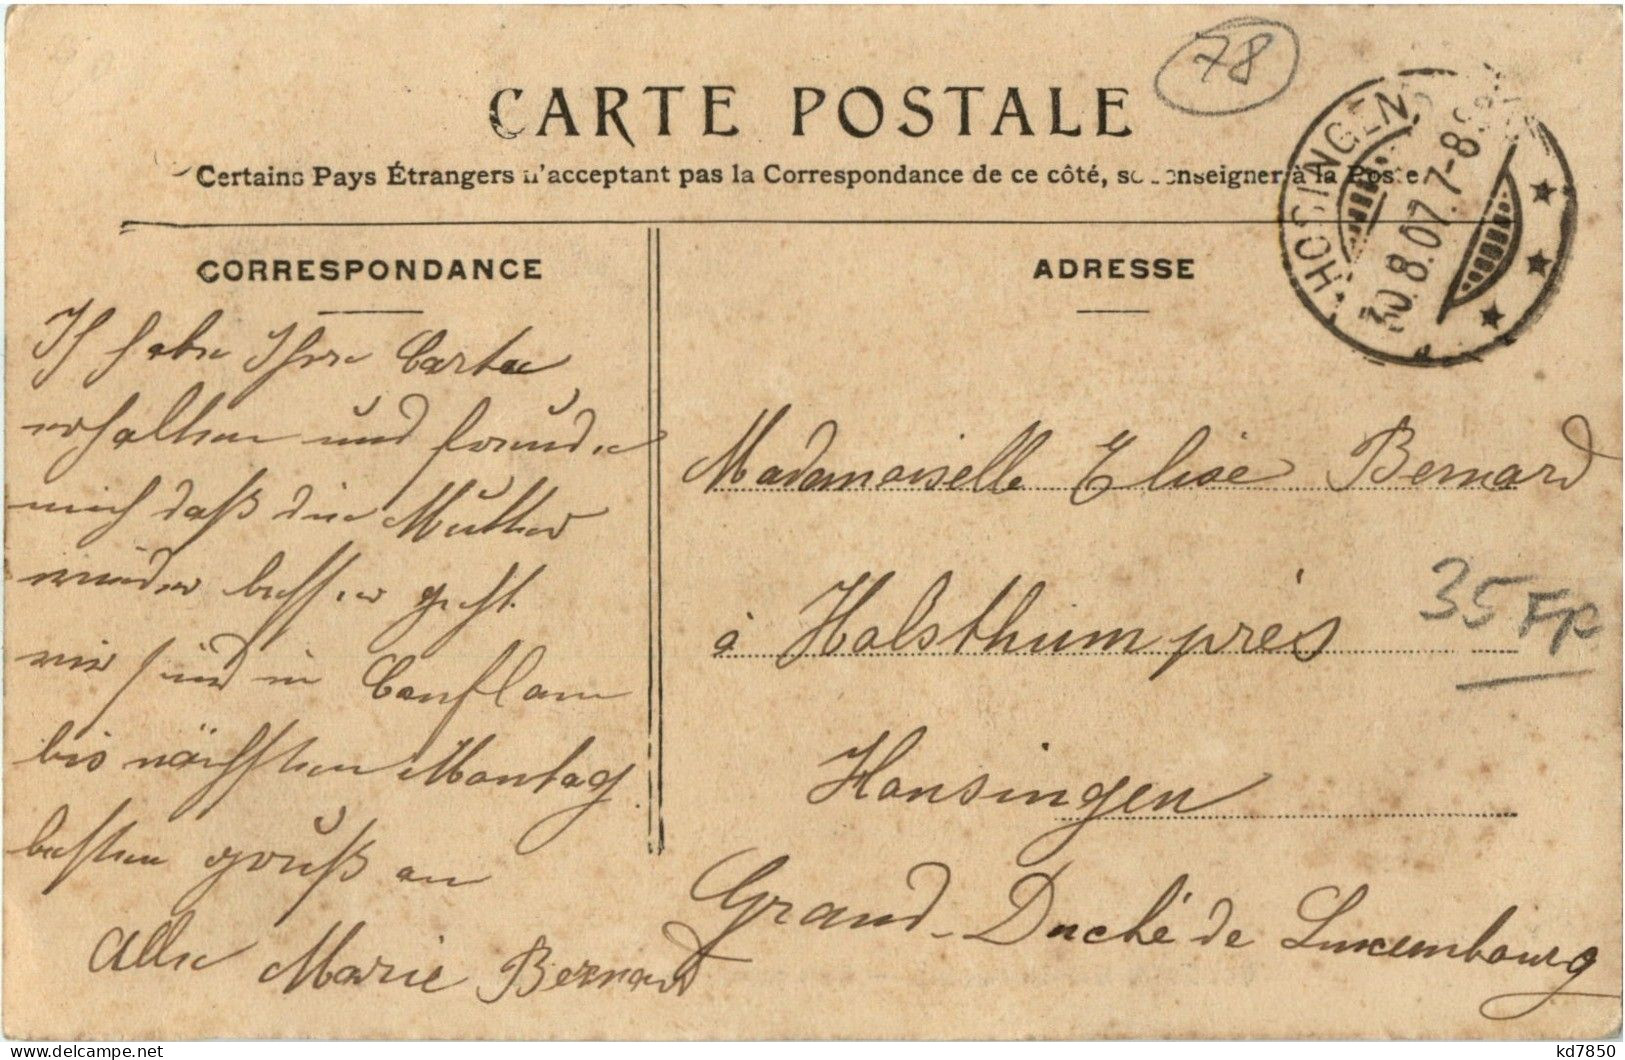 78
CARTE POSTALE
Certains Pays Étrangers n'acceptant pas la Correspondance de ce côté, se renseigner à la Poste
HOSINGEN
30.8.07. 7-8
CORRESPONDANCE
ADRESSE
Ich habe Ihre Carte
erhalten und freude
mich daß die Mutter
wieder besser geht
wir sind in Conflans
bis nächsten Montag
besten gruß an
Alle Marie Bernard
Mademoiselle Elise Bernard
à Holsthum près
Honsingen
Grand-Duché de Luxembourg
35 FR
delcampe.net
kd7850